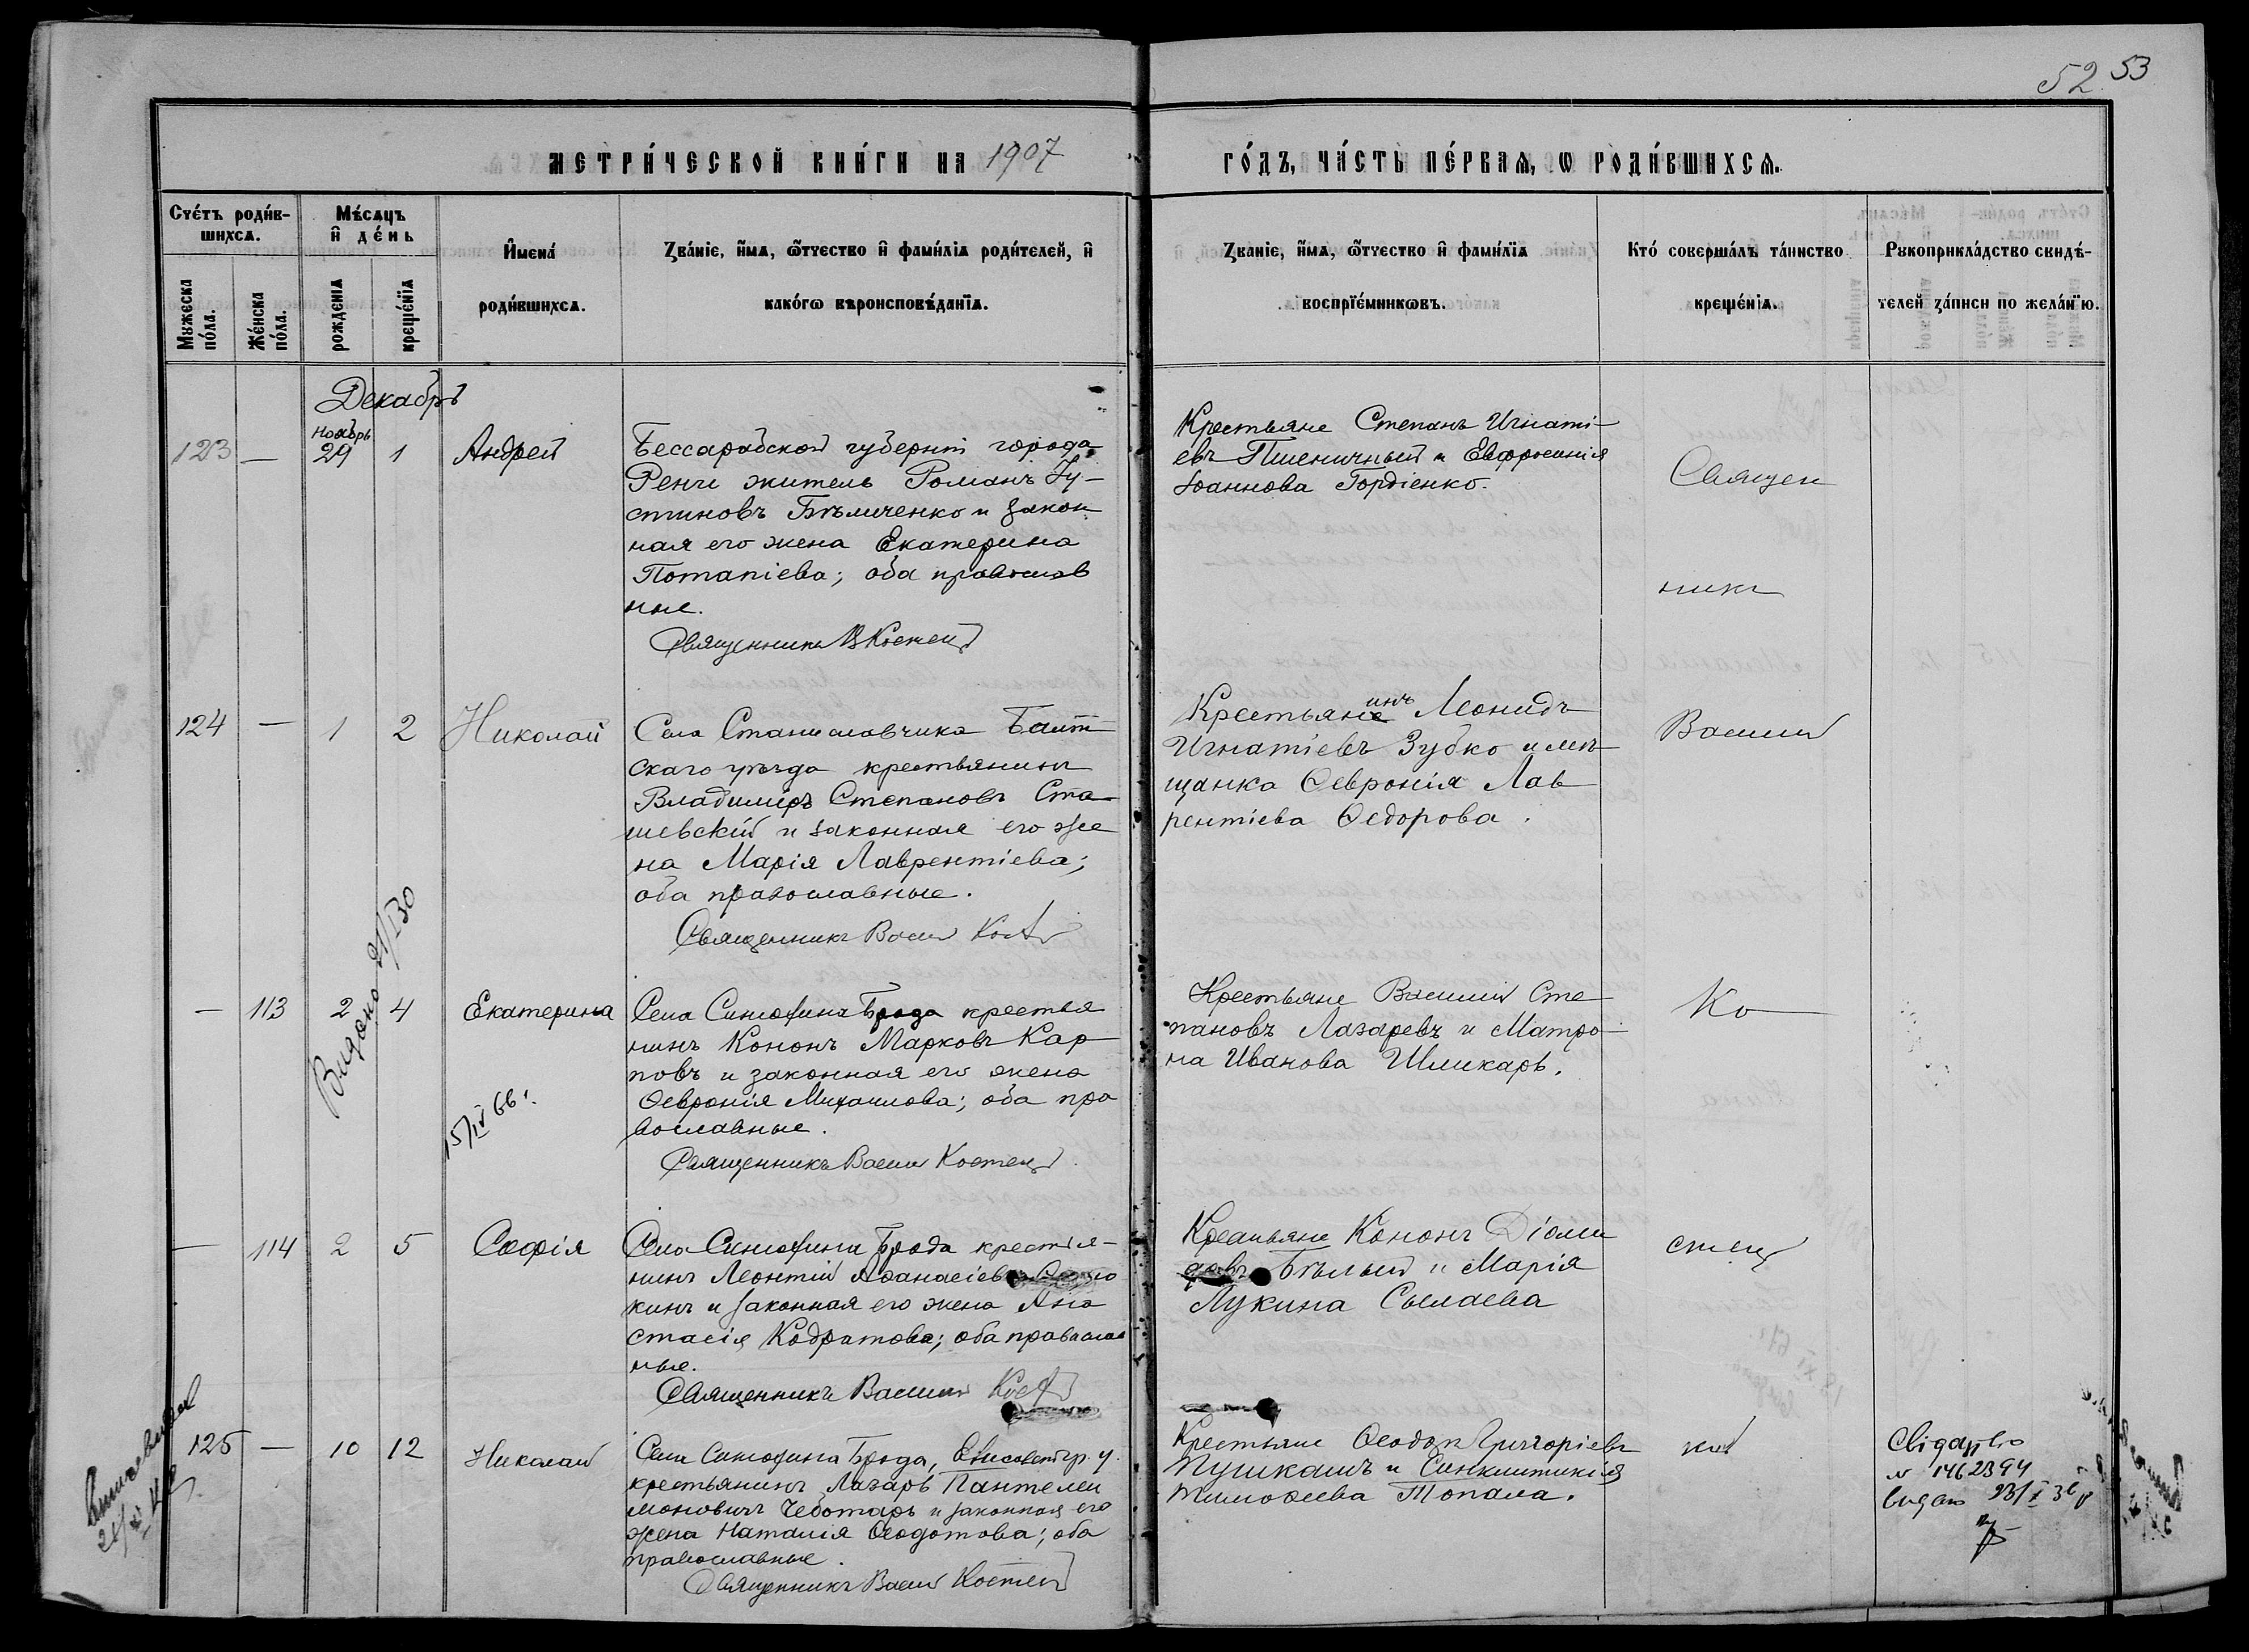 52. 53
МЕТРИ́ЧЕСКОЙ КНИ́ГИ НА 1907
ГО́ДЪ, ЧА́СТЬ ПЕ́РВАѦ, Ѡ РОДИ́ВШИХСѦ.
Сче́тъ роди́в-
шихсѧ.
Мꙋжеска по́ла.
Же́нска по́ла.
Мѣ́сѧцъ
и҆ де́нь
рожденїѧ
креще́нїѧ
И҆мена́
роди́вшихсѧ.
Зва́нїе, и҆́мѧ, ѿчество и҆ фами́лїѧ роди́телей, и҆
како́гѡ вѣроисповѣ́данїѧ.
Зва́нїе, и҆́мѧ, ѿчество и҆ фами́лїѧ
воспрїе́мникѡвъ.
Кто́ соверша́лъ та́инство
креще́нїѧ.
Рꙋкоприкла́дство свидѣ́-
телей за́писи по жела́нїю.
Декабрь
123 — Ноябрь 29 1 Андрей
Бессарабской губерніи города
Рени житель Романъ Іу-
стиновъ Бѣличенко и закон
ная его жена Екатерина
Потапіева; оба православ
ные.
Священникъ В Костец
Крестьяне Степанъ Игнаті-
евъ Пшеничный и Евфросинія
Іоаннова Гордіенко.
Священ
никъ
124 — 1 2 Николай
Села Станиславчика Балт
скаго уѣзда крестьянинъ
Владиміръ Степановъ Ста-
шевскій и законная его же
на Марія Лаврентіева;
оба православные.
Священникъ Васил Кост
Крестьянинъ Леонидъ
Игнатіевъ Зубко и мѣ
щанка Ѳевронія Лав
рентіева Ѳедорова.
Василій
— 113 2 4 Екатерина
Села Синюхина Брода крестья
нинъ Кононъ Марковъ Кар
повъ и законная его жена
Ѳевронія Михаилова; оба пра
вославные.
Священникъ Васил Костец
Крестьяне Василій Сте
пановъ Лазаревъ и Матро-
на Иванова Шликарь.
Ко
Видано 21/I 30
15/IV 66 г.
— 114 2 5 Софія
Села Синюхина Брода крестья-
нинъ Леонтій Аѳанасіевъ
кинъ и законная его жена Ана
стасія Кодратова; оба православ
ные.
Священникъ Василий Кост
Крестьяне Кононъ Діоми
довъ Бѣлый и Марія
Лукина Сысаева
стец
125 — 10 12 Николай
Села Синюхина Брода, Елисаветгр. у.
крестьянинъ Лазарь Пантелеи
моновичъ Чеботарь и законная его
жена Наталія Ѳеодотова; оба
православные.
Священникъ Васил Костец
Крестьяне Ѳеодоръ Григоріевъ
Пушкашъ и Синклитикія
Тимоѳеева Топала.
кій
Свідоцтво
№ 1462394
видано 23/X 36 р